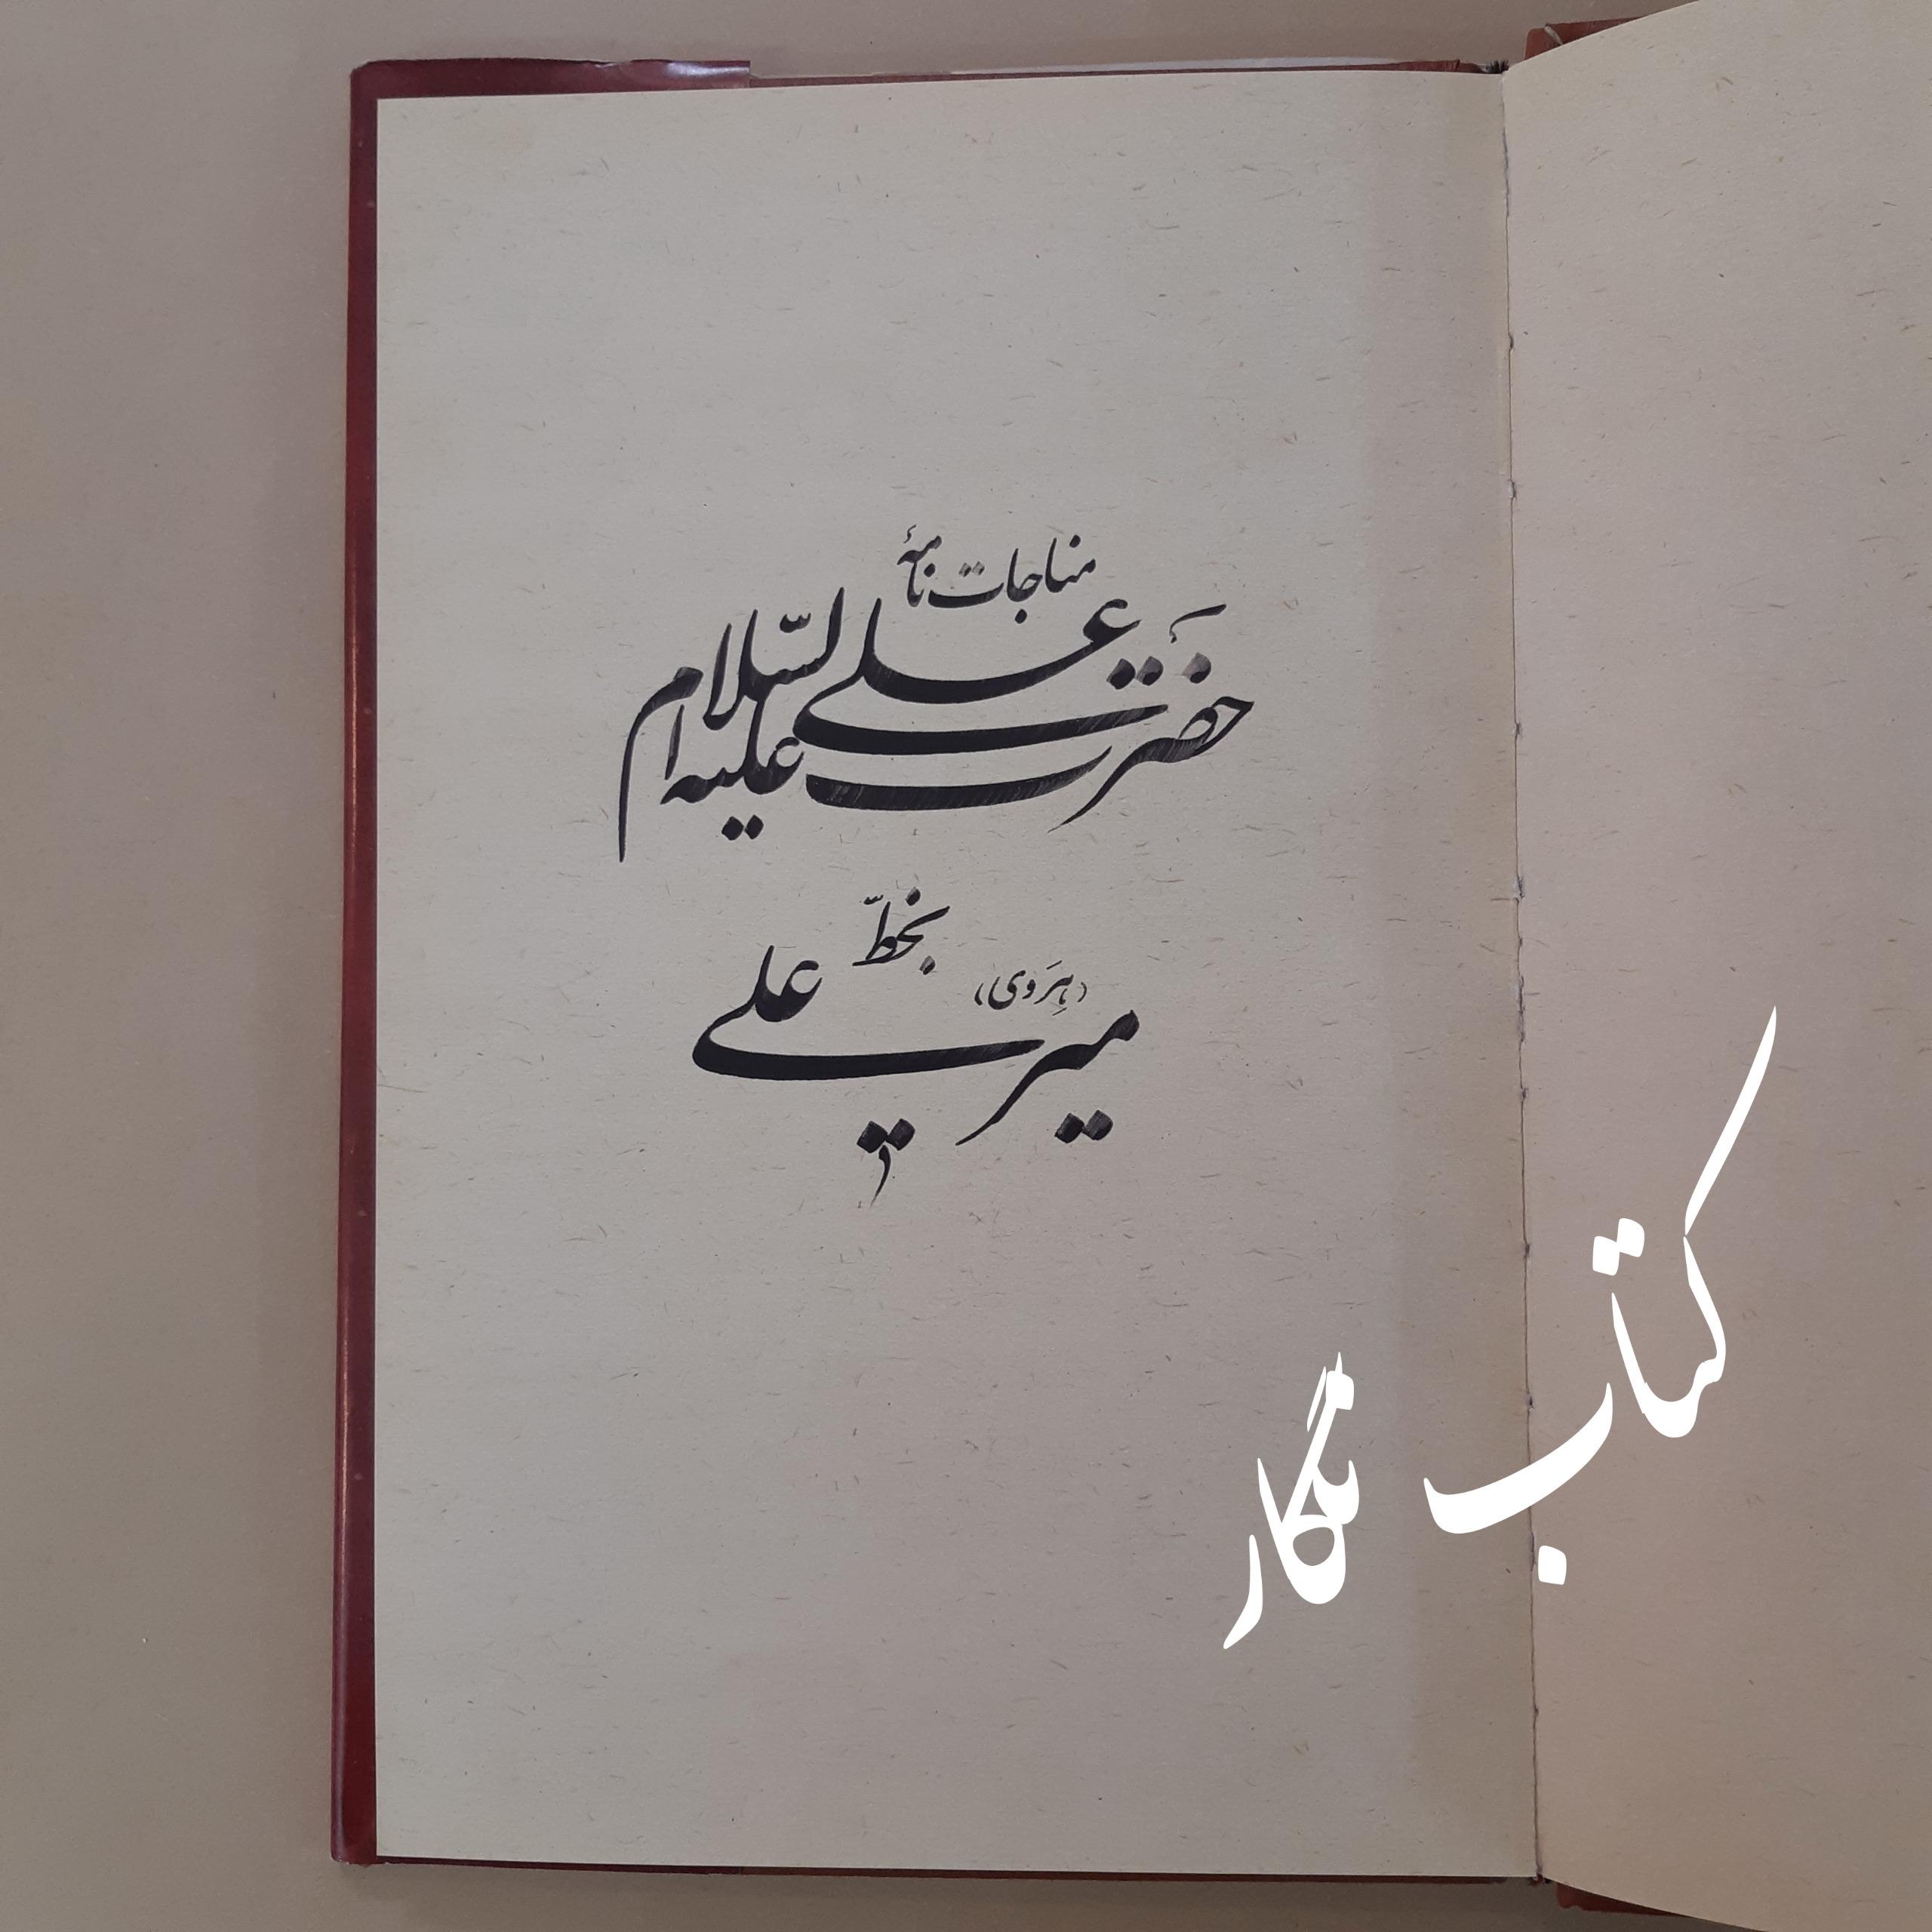 مناجات نامهٔ
حضرت علی علیه السّلام
بخطّ
میر علی (هِرَوی)
کتاب نگار